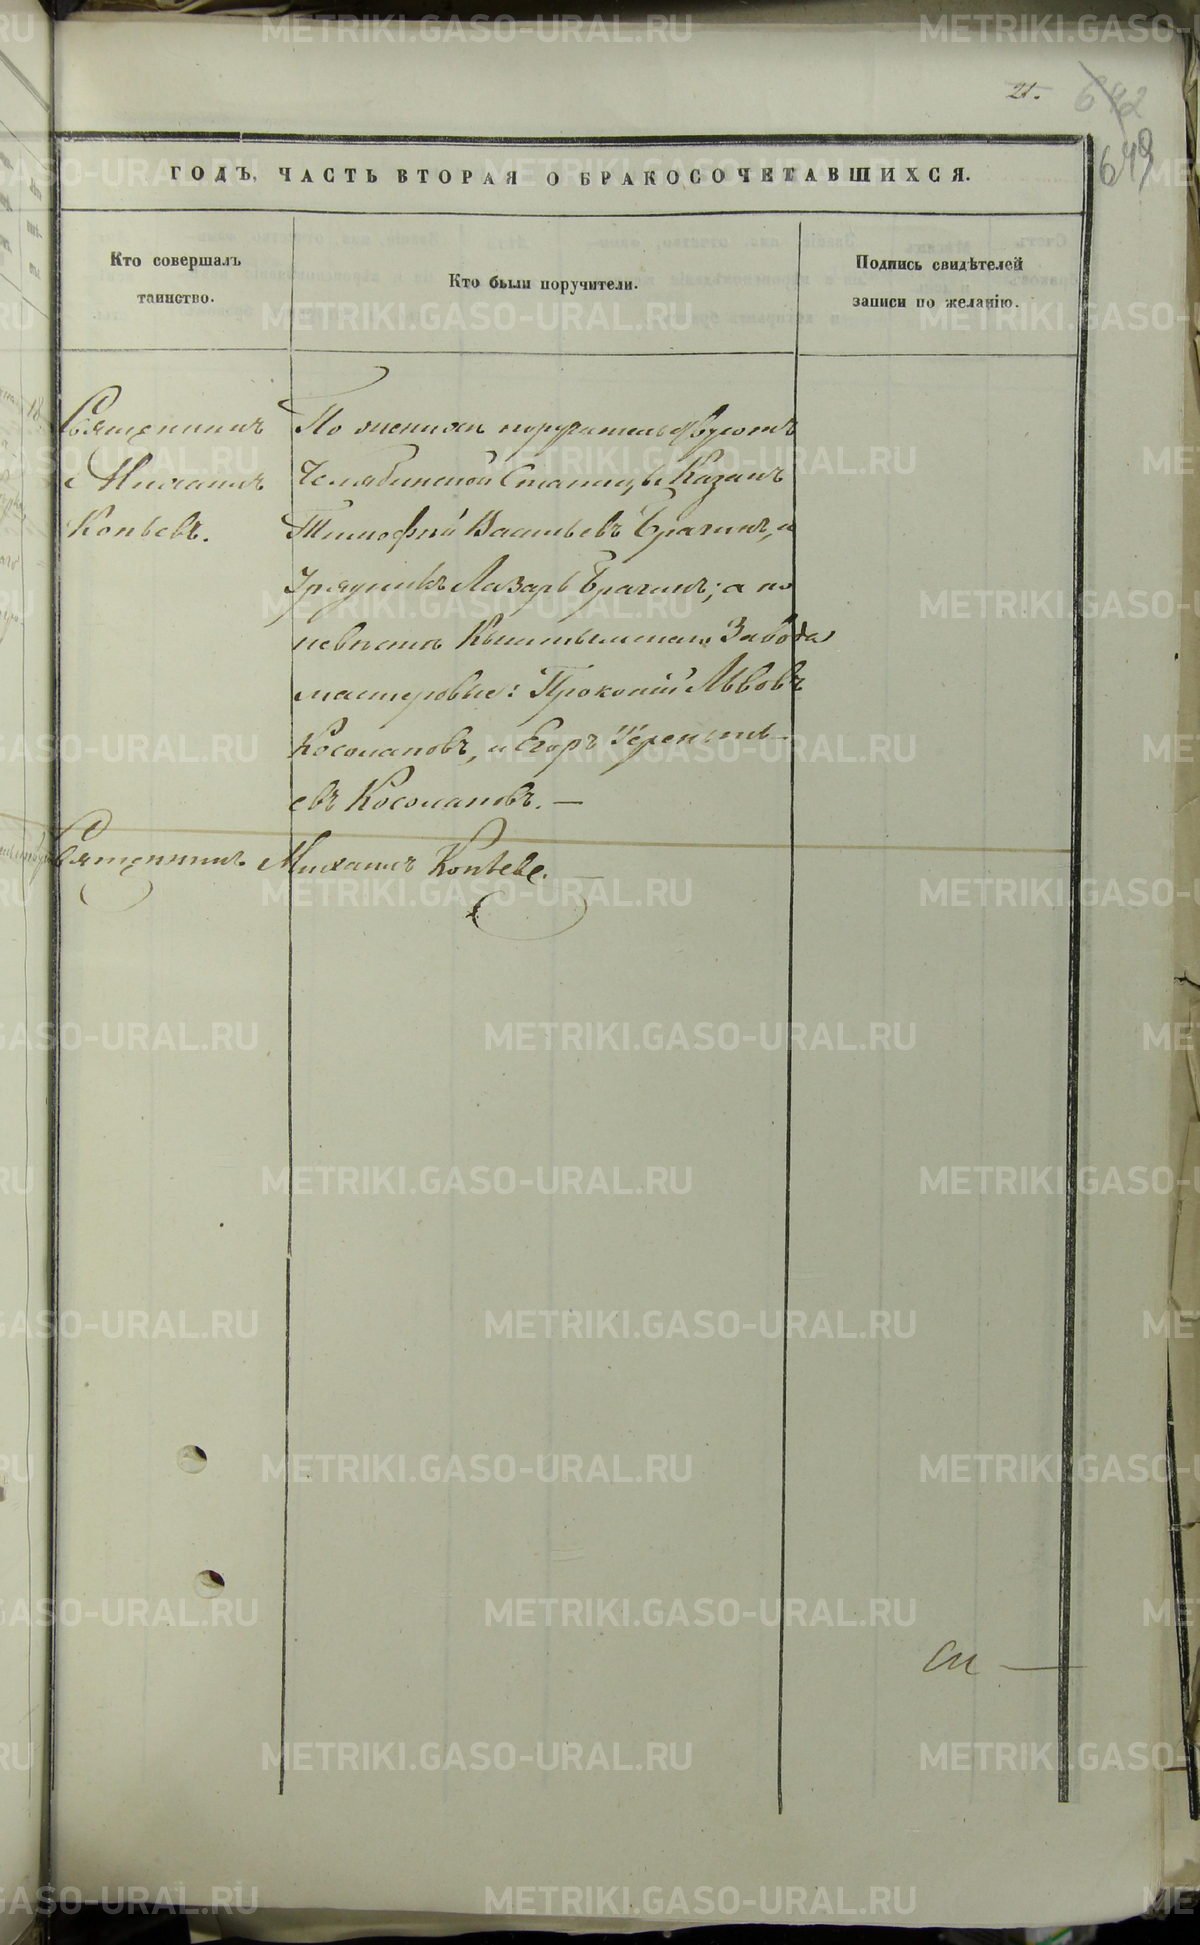 21.
642
649
ГОДЪ, ЧАСТЬ ВТОРАЯ О БРАКОСОЧЕТАВШИХСЯ.
Кто совершалъ
таинство.
Кто были поручители.
Подпись свидѣтелей
записи по желанію.
Священникъ
Михаилъ
Копьевъ.
По женихѣ поручительствуютъ
Челябинской Станицы Казакъ
Тимофей Васильевъ Брагинъ, и
Урядникъ Лазарь Брагинъ; а по
невѣстѣ Кыштымскаго Завода
мастеровые: Прокопій Львовъ
Косолаповъ, и Егоръ Терентье-
въ Косолаповъ. —
Священникъ Михаилъ Копьевъ.
METRIKI.GASO-URAL.RU